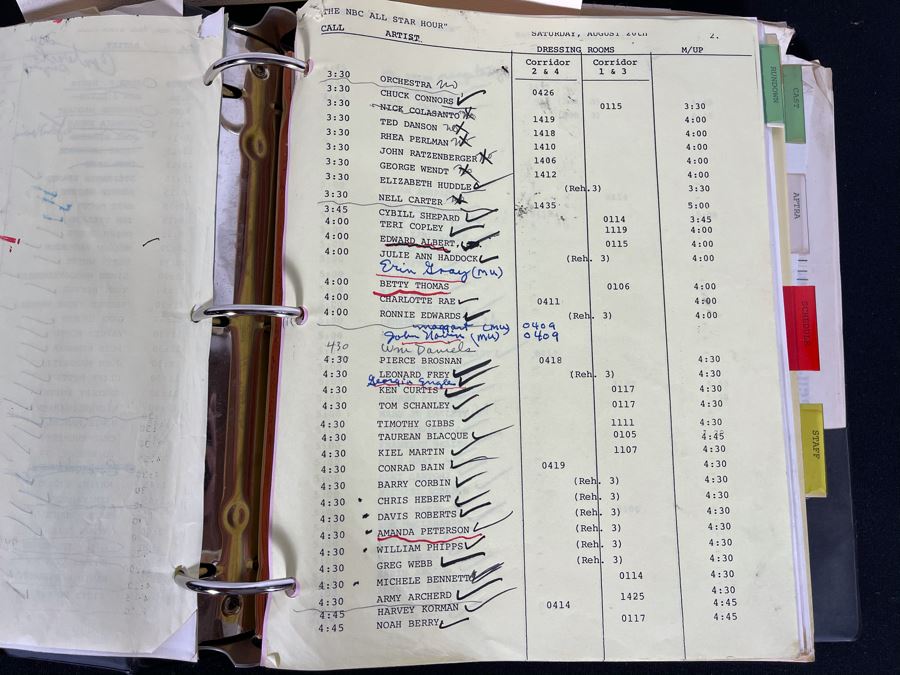 "THE NBC ALL STAR HOUR" SATURDAY, AUGUST 20th 2.
CALL ARTIST DRESSING ROOMS M/UP
Corridor 2 & 4 Corridor 1 & 3
3:30 ORCHESTRA no
3:30 CHUCK CONNORS 0426
3:30 NICK COLASANTO 0115 3:30
3:30 TED DANSON no 1419 4:00
3:30 RHEA PERLMAN 1418 4:00
3:30 JOHN RATZENBERGER 1410 4:00
3:30 GEORGE WENDT 1406 4:00
3:30 ELIZABETH HUDDLE 1412 4:00
(Reh.3) 3:30
3:30 NELL CARTER 1435 5:00
3:45 CYBILL SHEPARD 0114 3:45
4:00 TERI COPLEY 1119 4:00
4:00 EDWARD ALBERT, 0115 4:00
4:00 JULIE ANN HADDOCK (Reh. 3) 4:00
Erin Gray (MU)
4:00 BETTY THOMAS 0106 4:00
4:00 CHARLOTTE RAE 0411 4:00
4:00 RONNIE EDWARDS (Reh. 3) 4:00
(MU) 0409
John Navin (MU) 0409
430 Wm Daniels
4:30 PIERCE BROSNAN 0418 4:30
4:30 LEONARD FREY (Reh. 3) 4:30
Georgia Engle
4:30 KEN CURTIS 0117 4:30
4:30 TOM SCHANLEY 0117 4:30
4:30 TIMOTHY GIBBS 1111 4:30
4:30 TAUREAN BLACQUE 0105 4:45
4:30 KIEL MARTIN 1107 4:30
4:30 CONRAD BAIN 0419 4:30
4:30 BARRY CORBIN (Reh. 3) 4:30
4:30 CHRIS HEBERT (Reh. 3) 4:30
4:30 DAVIS ROBERTS (Reh. 3) 4:30
4:30 AMANDA PETERSON (Reh. 3) 4:30
4:30 WILLIAM PHIPPS (Reh. 3) 4:30
4:30 GREG WEBB (Reh. 3) 4:30
4:30 MICHELE BENNETT 0114 4:30
4:30 ARMY ARCHERD 1425 4:30
4:45 HARVEY KORMAN 0414 4:45
4:45 NOAH BERRY 0117 4:45
RUNDOWN
CAST
AFTRA
SCHEDULE
STAFF